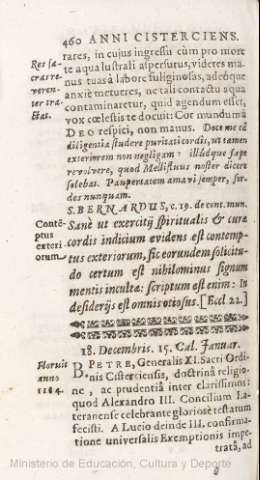 460 ANNI CISTERCIENS.
rares, in cujus ingressu cùm pro more
te aqua lustrali aspersurus, videres ma-
nus tuas à labore fuliginosas, adeòque
anxiè metueres, ne tali contactu aqua
contaminaretur, quid agendum esset,
vox cœlestis te docuit: Cor mundum à
DEO respici, non manus. Doce me eâ
diligentiâ studere puritati cordis, ut tamen
exteriorem non negligam: illudque sæpe
revolvere, quod Mellifluus noster dicere
solebat. Paupertatem amavi semper, sor-
des nunquam.
Res sa-
cras re-
veren-
ter tra-
ctas.
S. BERNARDUS, c. 19. de cont. mun.
Sanè ut exercitij spiritualis & curæ
cordis indicium evidens est contemp-
tus exteriorum, sic eorundem solicitu-
do certum est nihilominus signum
mentis incultæ: scriptum est enim: In
desiderijs est omnis otiosus. [Eccl 22.]
Conté-
ptus
exteri
orum
18. Decembris. 15. Cal. Januar.
B. PETRE, Generalis XI. Sacri Ordi-
nis Cisterciensis, doctrinâ religio-
ne, ac prudentiâ inter clarissimos:
quod Alexandro III. Concilium La-
teranense celebrante gloriosè testatum
fecisti. A Lucio deinde III. confirma-
tione universalis Exemptionis impe-
tratâ, ad
Floruit
anno
1184.
Ministerio de Educación, Cultura y Deporte